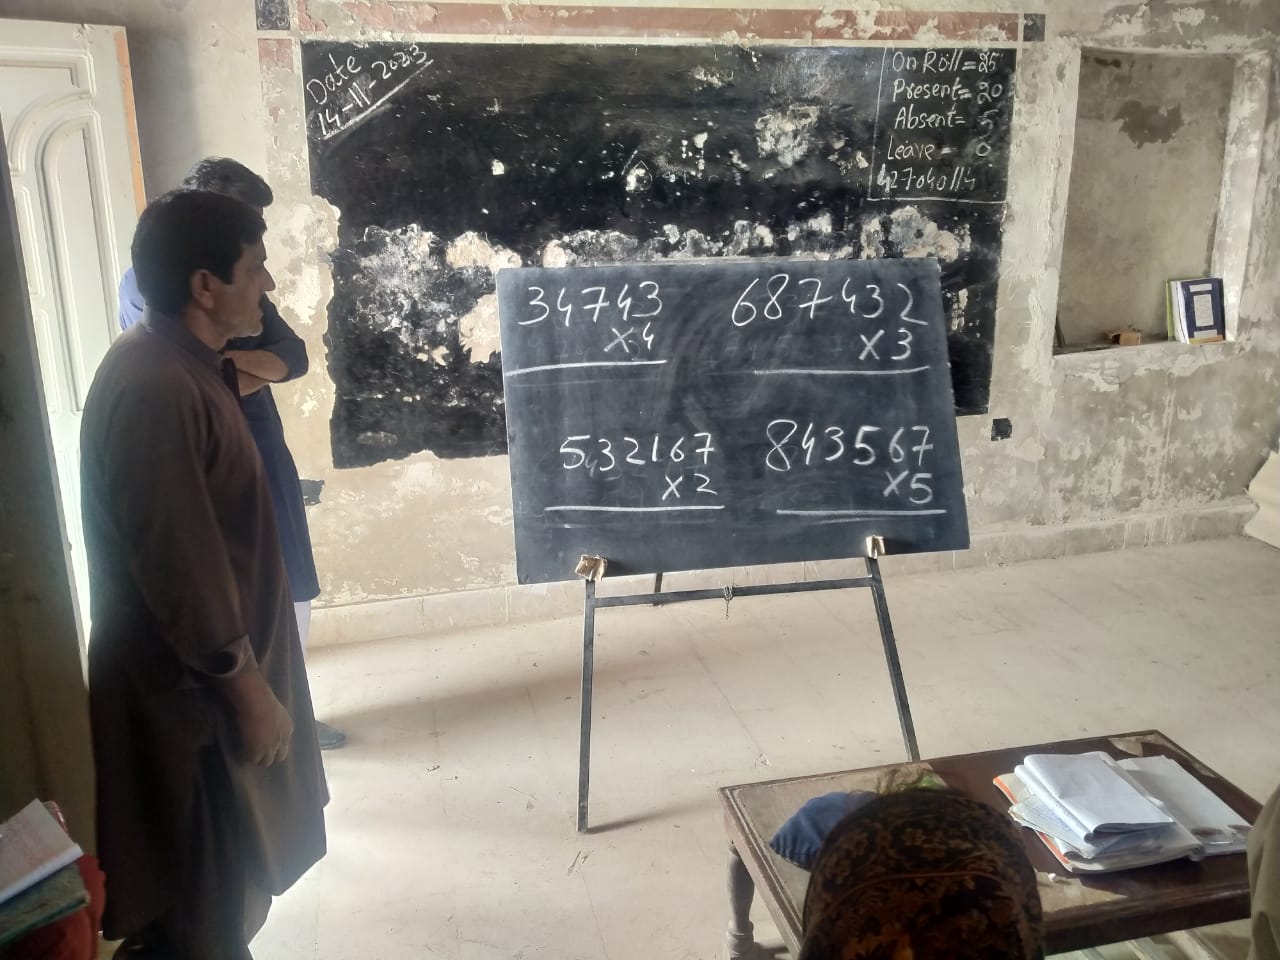 Date
14-11-2023
On Roll = 25
Present = 20
Absent = 5
Leave = 0
427040114
34743
X 4
687432
X 3
532167
X 2
843567
X 5